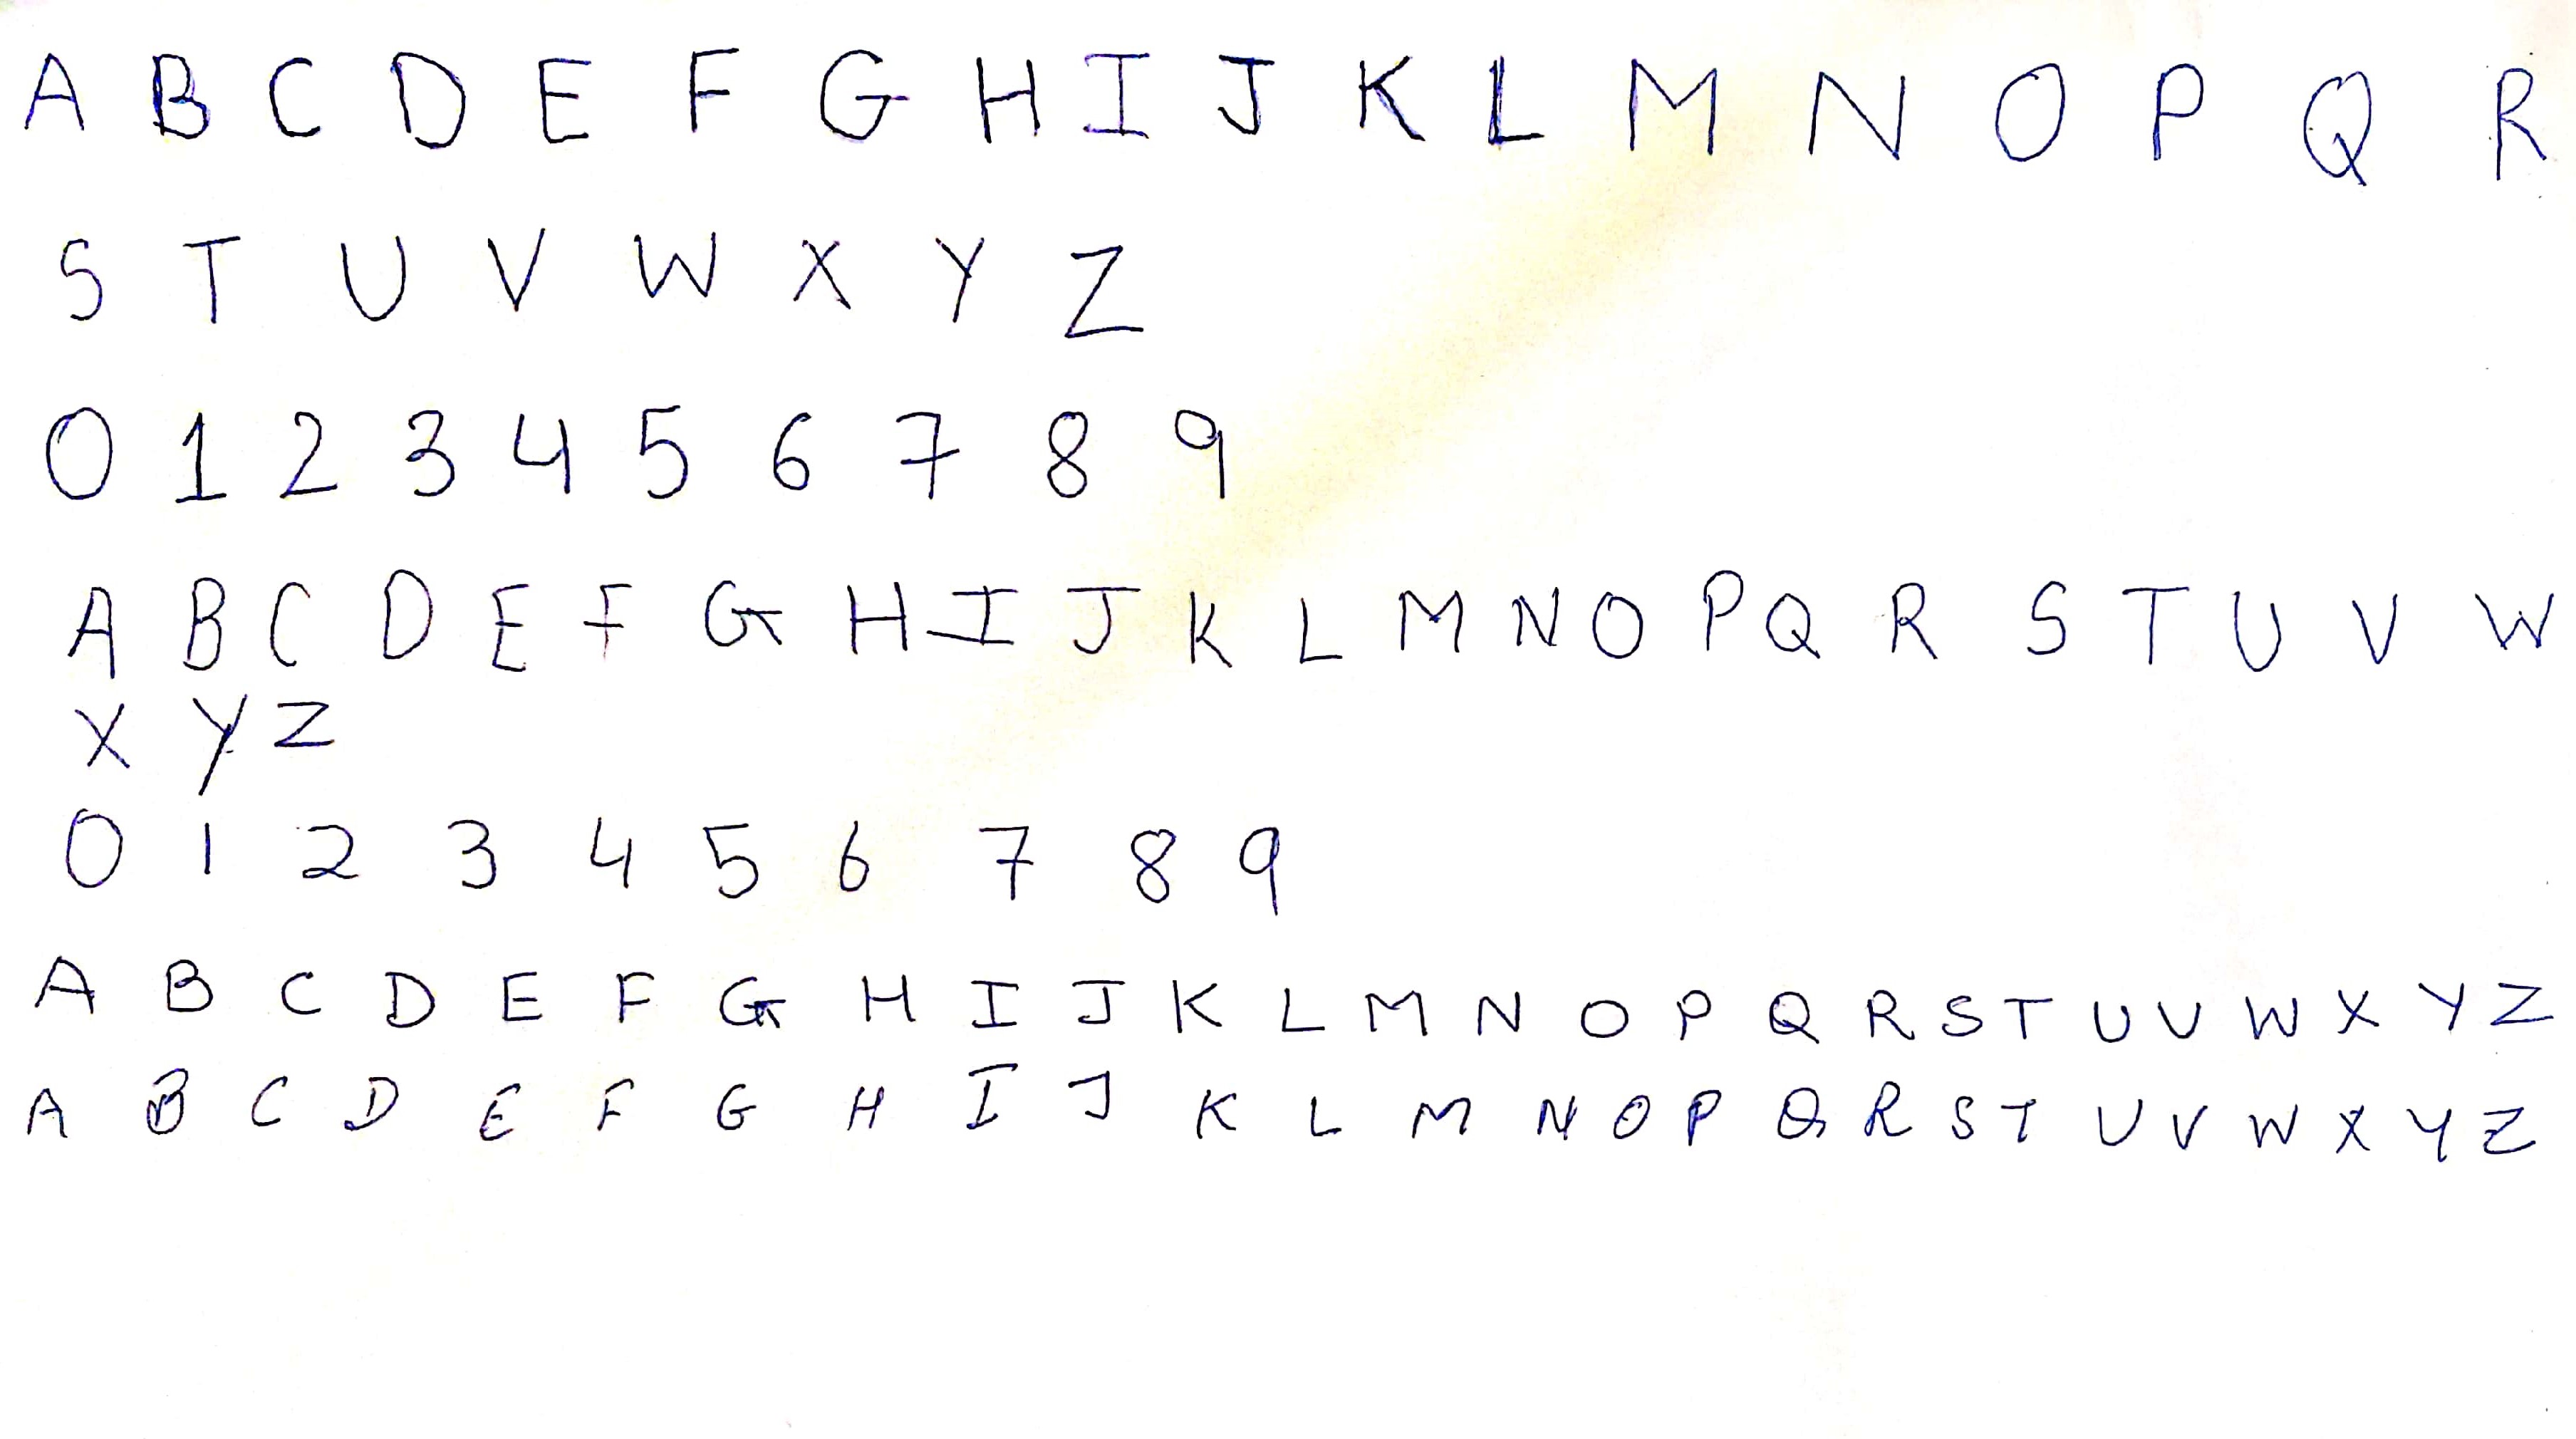 A B C D E F G H I J K L M N O P Q R
S T U V W X Y Z
0 1 2 3 4 5 6 7 8 9
A B C D E F G H I J K L M N O P Q R S T U V W
X Y Z
0 1 2 3 4 5 6 7 8 9
A B C D E F G H I J K L M N O P Q R S T U V W X Y Z
A B C D E F G H I J K L M N O P Q R S T U V W X Y Z